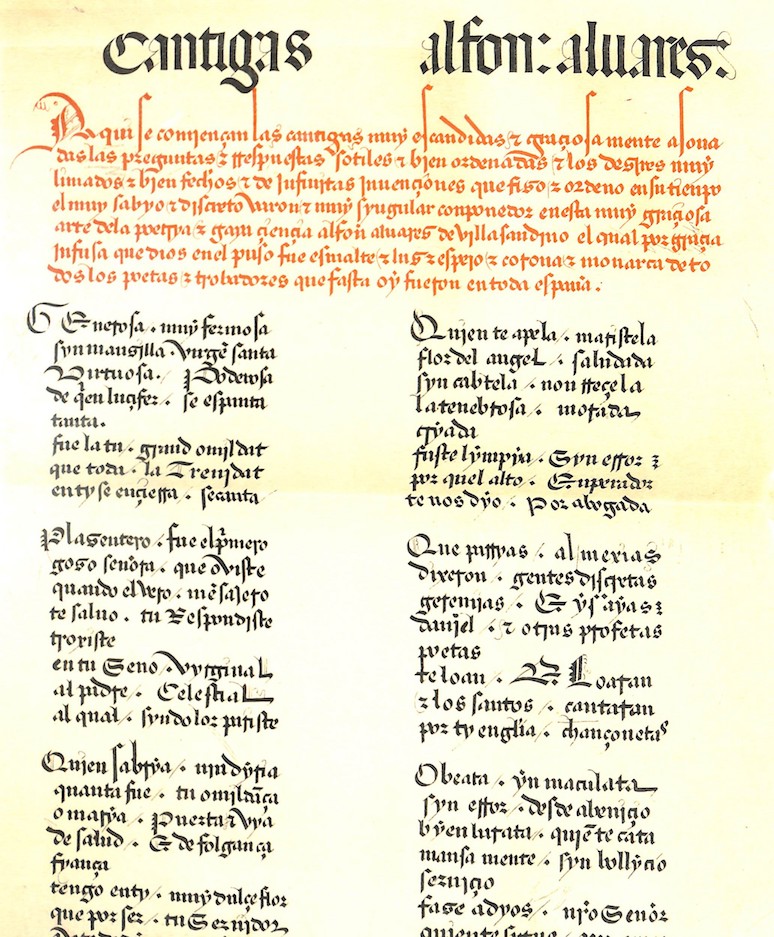 Cantigas alfon: aluares:
Da qui se comjençan las cantigas muy escandidas & graçiosa mente asona
das las preguntas & rrespuestas sotiles & bjen ordenadas & los desires muỹ
limados & bjen fechos & de Infinitas Inuençiones que fiso & ordeno en su tienpo
el muy sabyo & discreto Varon & muỹ syngular conponedor en esta muỹ graçiosa
arte dela poetrya & gaya çiençia alfon aluares de villasandino el qual por graçia
Infusa que dios en el puso fue esmalte & lus & espejo & corona & monarca de to
dos los poetas & trobadores que fasta oỹ fueron en toda españa.
GEnerosa . muỹ fermosa
syn mansilla . Virgẽ santa
Virtuosa . Poderosa
de q̃en luçifer . se espanta
tanta .
fue la tu . grand omildat
que toda . la Trenidat
en ty se ençierra . se canta
Plasentero . fue el p̃mero
goso señora . que Aviste
quando el vero . mẽsajero
te saluo . tu Respondiste
troxiste
en tu Seno . vyrginal
al padre . Celestial
al qual . syn dolor pariste
Quien sabrya . nin dyria
quanta fue . tu omildãça
o marya . Puerta & vya
de salud . & de folgança
fyança
tengo en ty . muỹ dulçe flor
que por ser . tu Seruidor
Quien te apela . maristela
flor del angel . saludada
syn cabtela . non rreçela
la tenebrosa . morada
cyada
fuste lỹmpỹa . Syn error &
por quel alto . Enperador
te nos dyo . Por abogada
Que parryas . al mexias
dixeron . gentes discretas
geremjas . E ỹsaỹas &
danjel . & otras profetas
poetas
te loan . & Loaran
& los santos . cantaran
por ty en glia . chançonetas
O beata . ỹn maculata
syn error . desde abeniçio
bỹen barata . quiẽ te cata
mansa mente . syn bollyçio
seruiçio
fase a dyos . nr̃o Señor